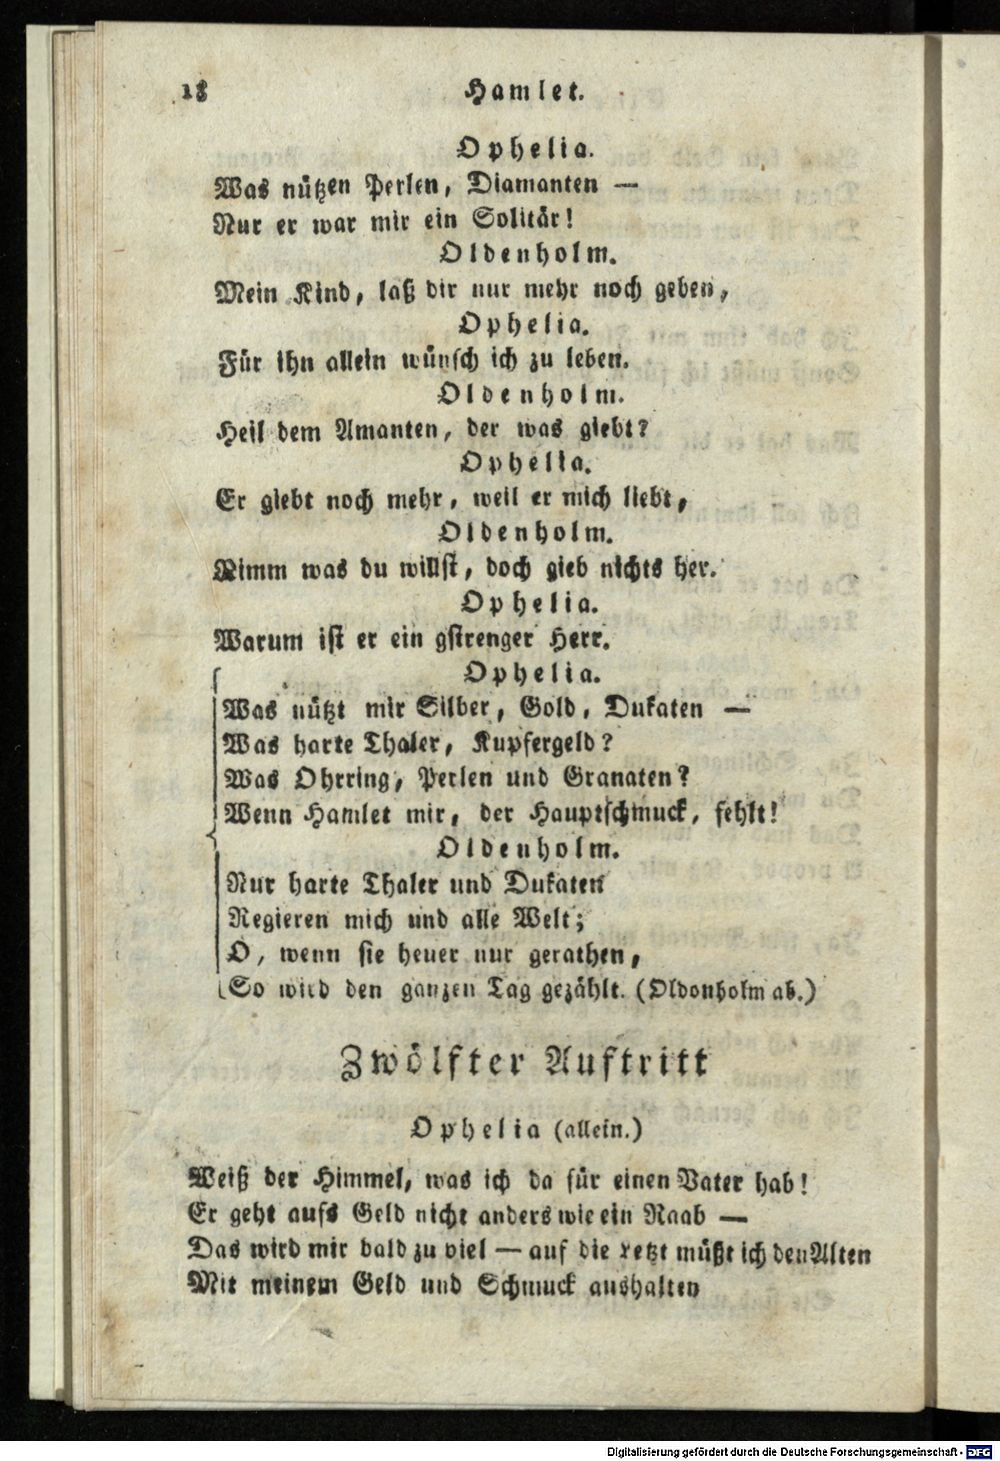 18 Hamlet.
Ophelia.
Was nützen Perlen, Diamanten —
Nur er war mir ein Solitär!
Oldenholm.
Mein Kind, laß dir nur mehr noch geben,
Ophelia.
Für ihn allein wünsch ich zu leben.
Oldenholm.
Heil dem Amanten, der was giebt?
Ophelia.
Er giebt noch mehr, weil er mich liebt,
Oldenholm.
Nimm was du willst, doch gieb nichts her.
Ophelia.
Warum ist er ein gstrenger Herr.
Ophelia.
Was nützt mir Silber, Gold, Dukaten —
Was harte Thaler, Kupfergeld?
Was Ohrring, Perlen und Granaten?
Wenn Hamlet mir, der Hauptschmuck, fehlt!
Oldenholm.
Nur harte Thaler und Dukaten
Regieren mich und alle Welt;
O, wenn sie heuer nur gerathen,
So wird den ganzen Tag gezählt. (Oldonholm ab.)
Zwölfter Auftritt
Ophelia (allein.)
Weiß der Himmel, was ich da für einen Vater hab!
Er geht aufs Geld nicht anders wie ein Raab —
Das wird mir bald zu viel — auf die retzt müßt ich den Alten
Mit meinem Geld und Schmuck aushalten
Digitalisierung gefördert durch die Deutsche Forschungsgemeinschaft - DFG